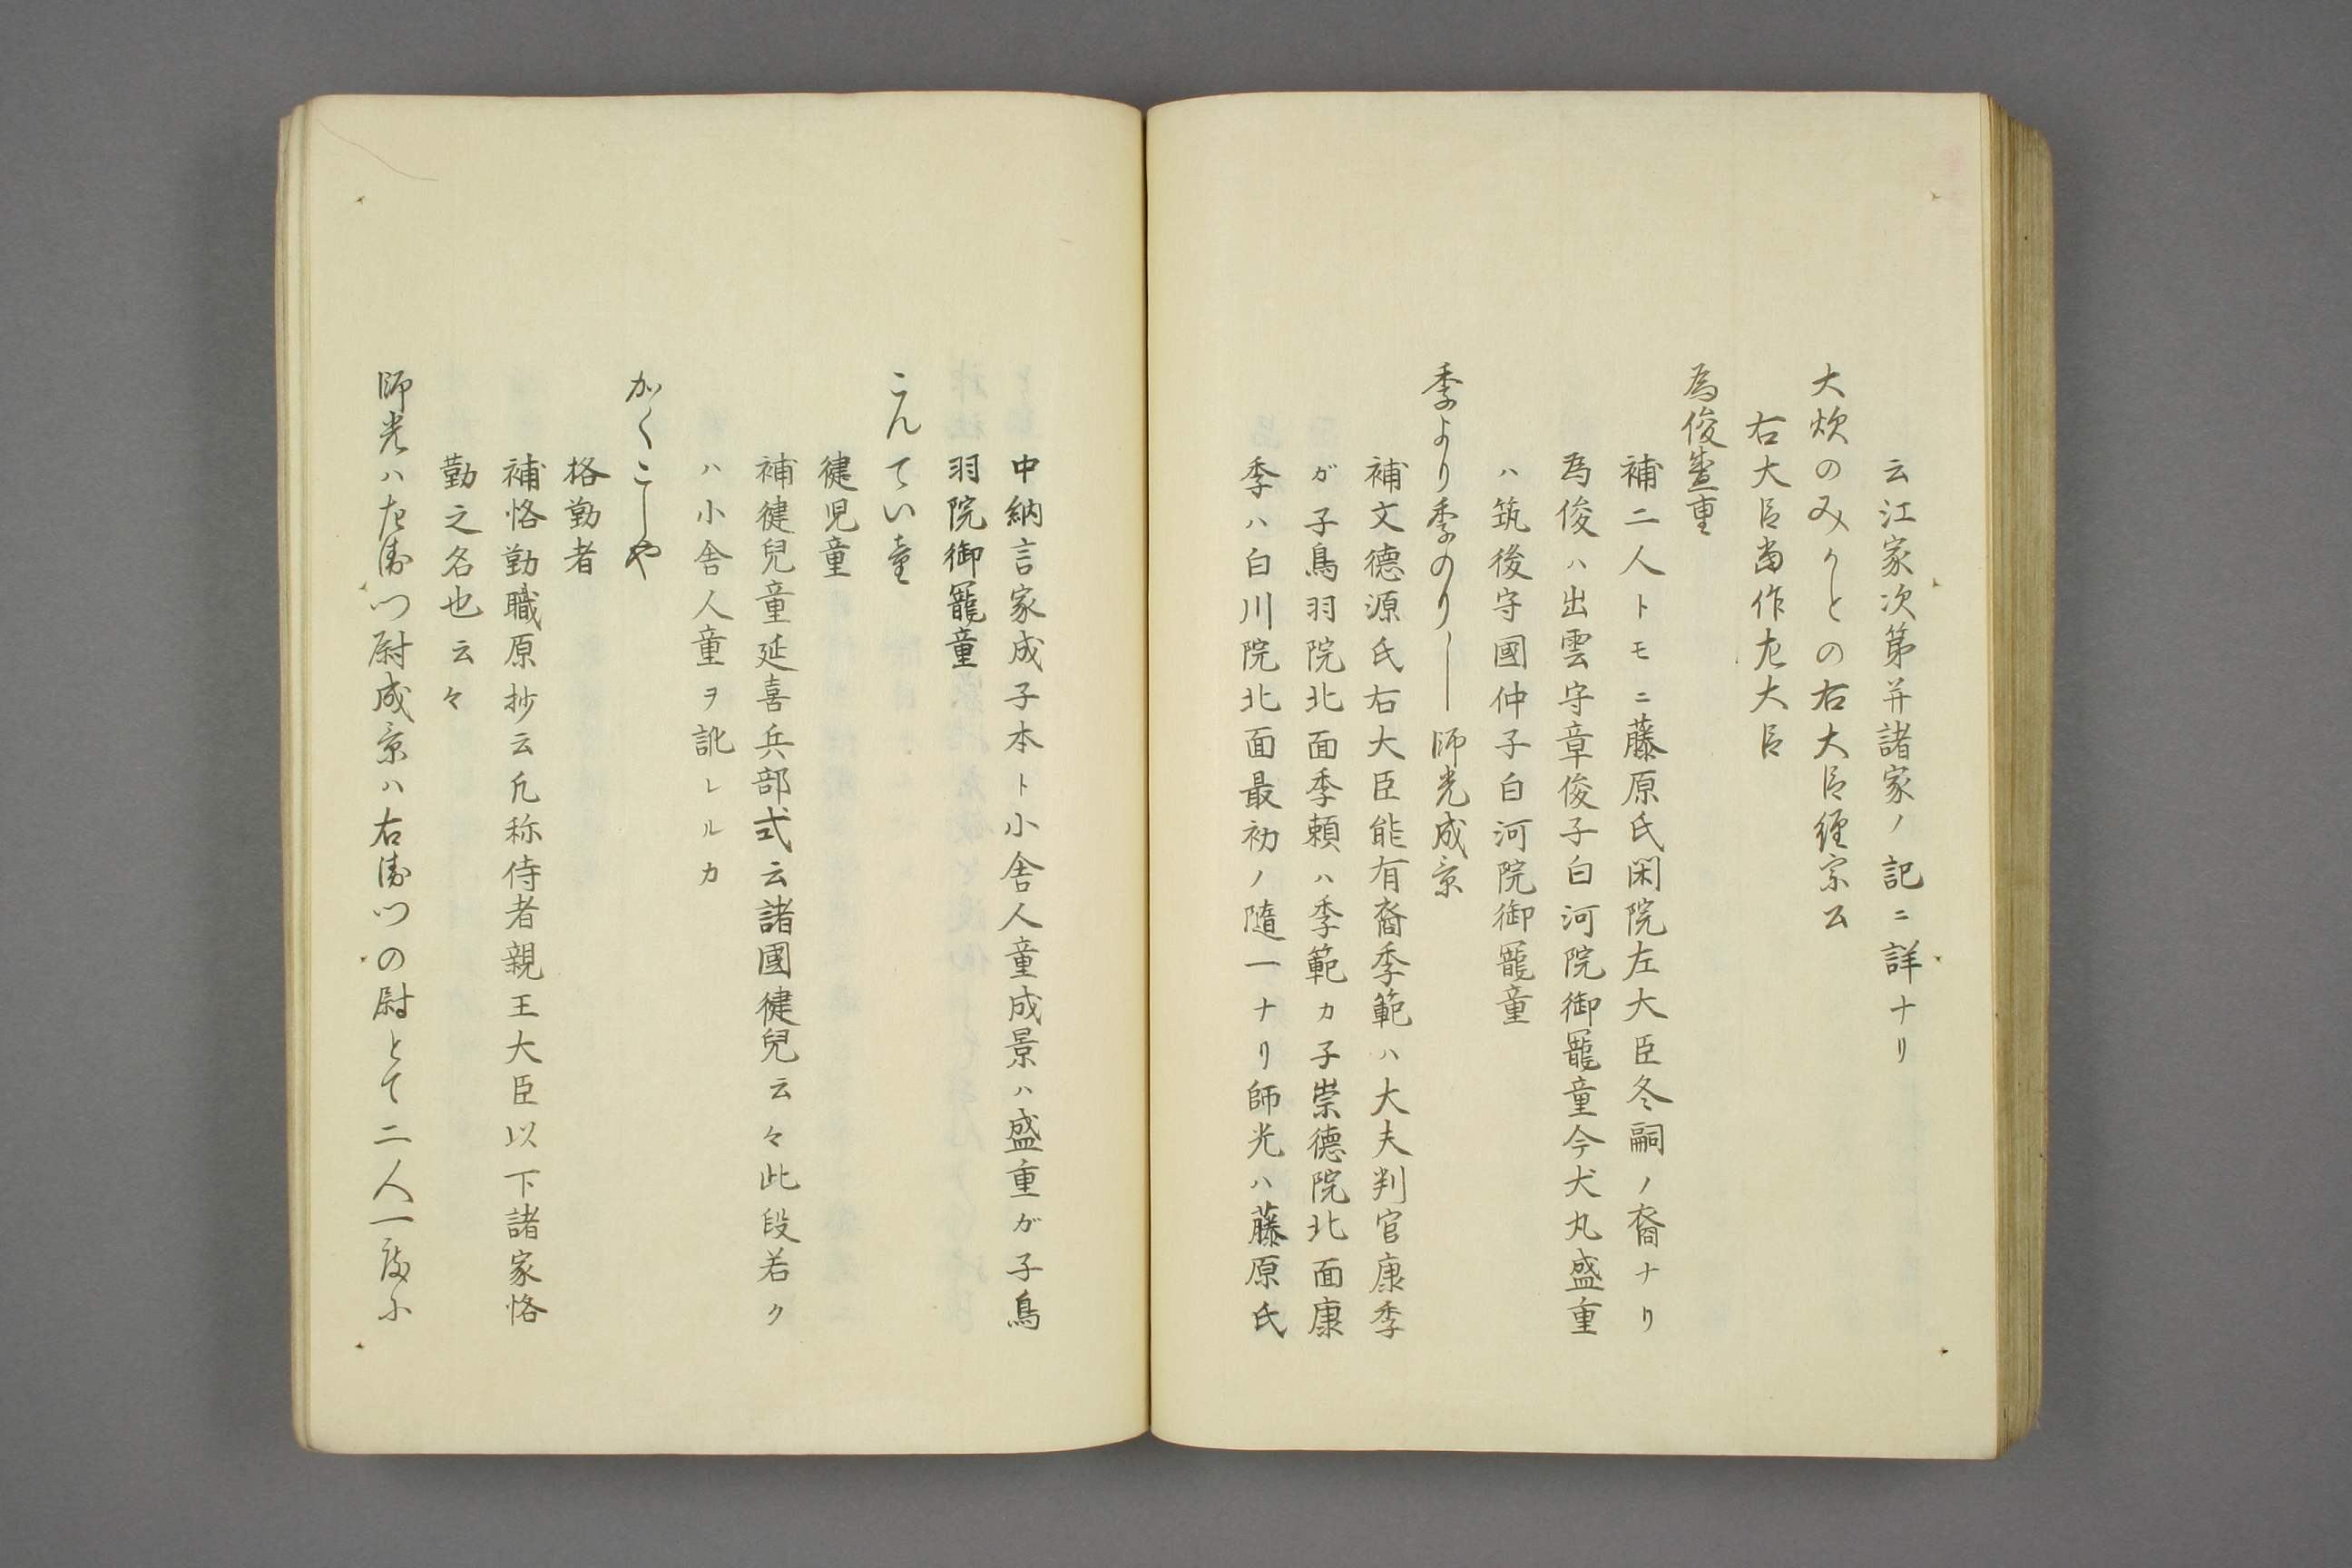 云江家次第并諸家ノ記ニ詳ナリ
大炊のみかとの右大臣経宗公
右大臣当作左大臣
為俊盛重
補二人トモニ藤原氏閑院左大臣冬嗣ノ裔ナリ
為俊ハ出雲守章俊子白河院御寵童今犬丸盛重
ハ筑後守國仲子白河院御寵童
季より季のり――師光成景
補文徳源氏右大臣能有裔季範ハ大夫判官康季
ガ子鳥羽院北面季頼ハ季範カ子崇徳院北面康
季ハ白川院北面最初ノ隨一ナリ師光ハ藤原氏
中納言家成子本ト小舎人童成景ハ盛重ガ子鳥
羽院御寵童
こんてい童
健児童
補健兒童延喜兵部式云諸國健兒云々此段若ク
ハ小舎人童ヲ訛レルカ
かくこしや
格勤者
補恪勤職原抄云凡称侍者親王大臣以下諸家恪
勤之名也云々
師光ハ左衛門尉成景ハ右衛門の尉とて二人一度に